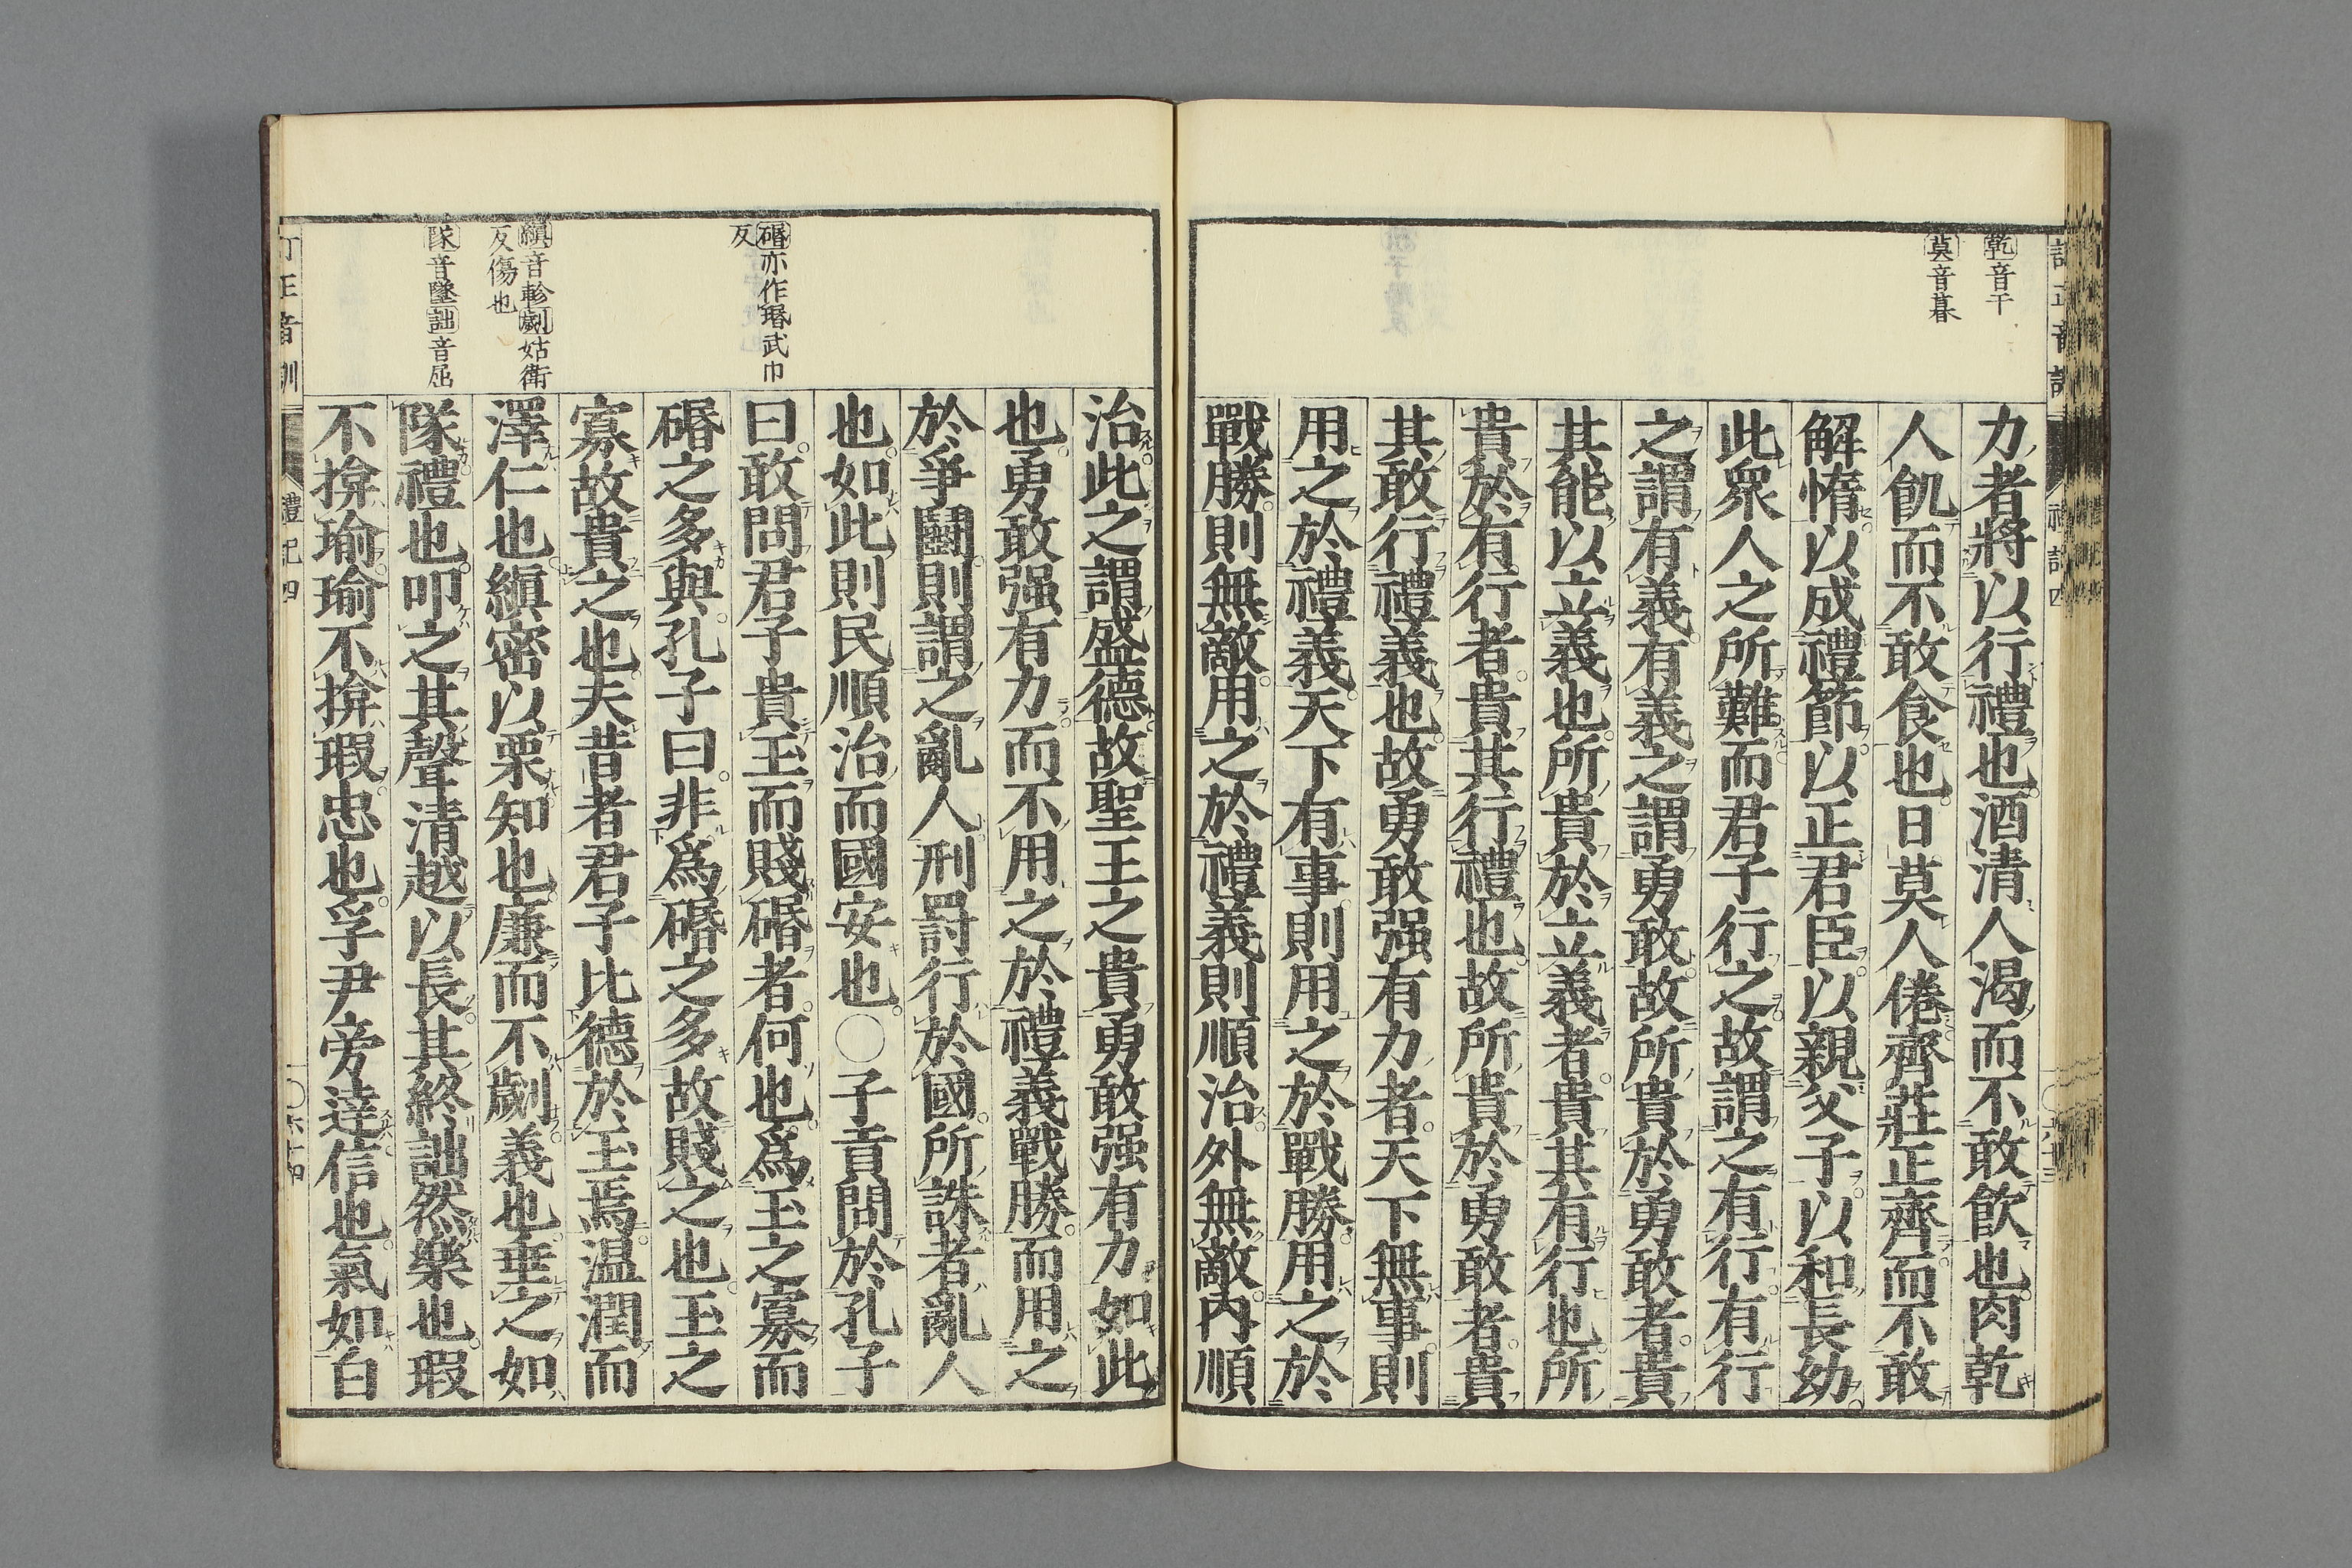 乾音干
莫音暮
力者將以行禮也酒清人渴而不敢飲也肉乾
人飢而不敢食也日莫人倦齊莊正齊而不敢
解惰以成禮節以正君臣以親父子以和長幼
此衆人之所難而君子行之故謂之有行有行
之謂有義有義之謂勇敢故所貴於勇敢者貴
其能以立義也所貴於立義者貴其有行也所
貴於有行者貴其行禮也故所貴於勇敢者貴
其敢行禮義也故勇敢强有力者天下無事則
用之於禮義天下有事則用之於戰勝用之於
戰勝則無敵用之於禮義則順治外無敵內順
碈亦作㻉武巾
反
縝音軫劌姑衛
反傷也
隊音墜詘音屈
治此之謂盛德故聖王之貴勇敢强有力如此
也勇敢强有力而不用之於禮義戰勝而用之
於爭鬭則謂之亂人刑罰行於國所誅者亂人
也如此則民順治而國安也○子貢問於孔子
曰敢問君子貴玉而賤碈者何也爲玉之寡而
碈之多與孔子曰非爲碈之多故賤之也玉之
寡故貴之也夫昔者君子比德於玉焉温潤而
澤仁也縝密以栗知也廉而不劌義也垂之如
隊禮也叩之其聲清越以長其終詘然樂也瑕
不揜瑜瑜不揜瑕忠也孚尹旁達信也氣如白
訂正音訓
禮記四